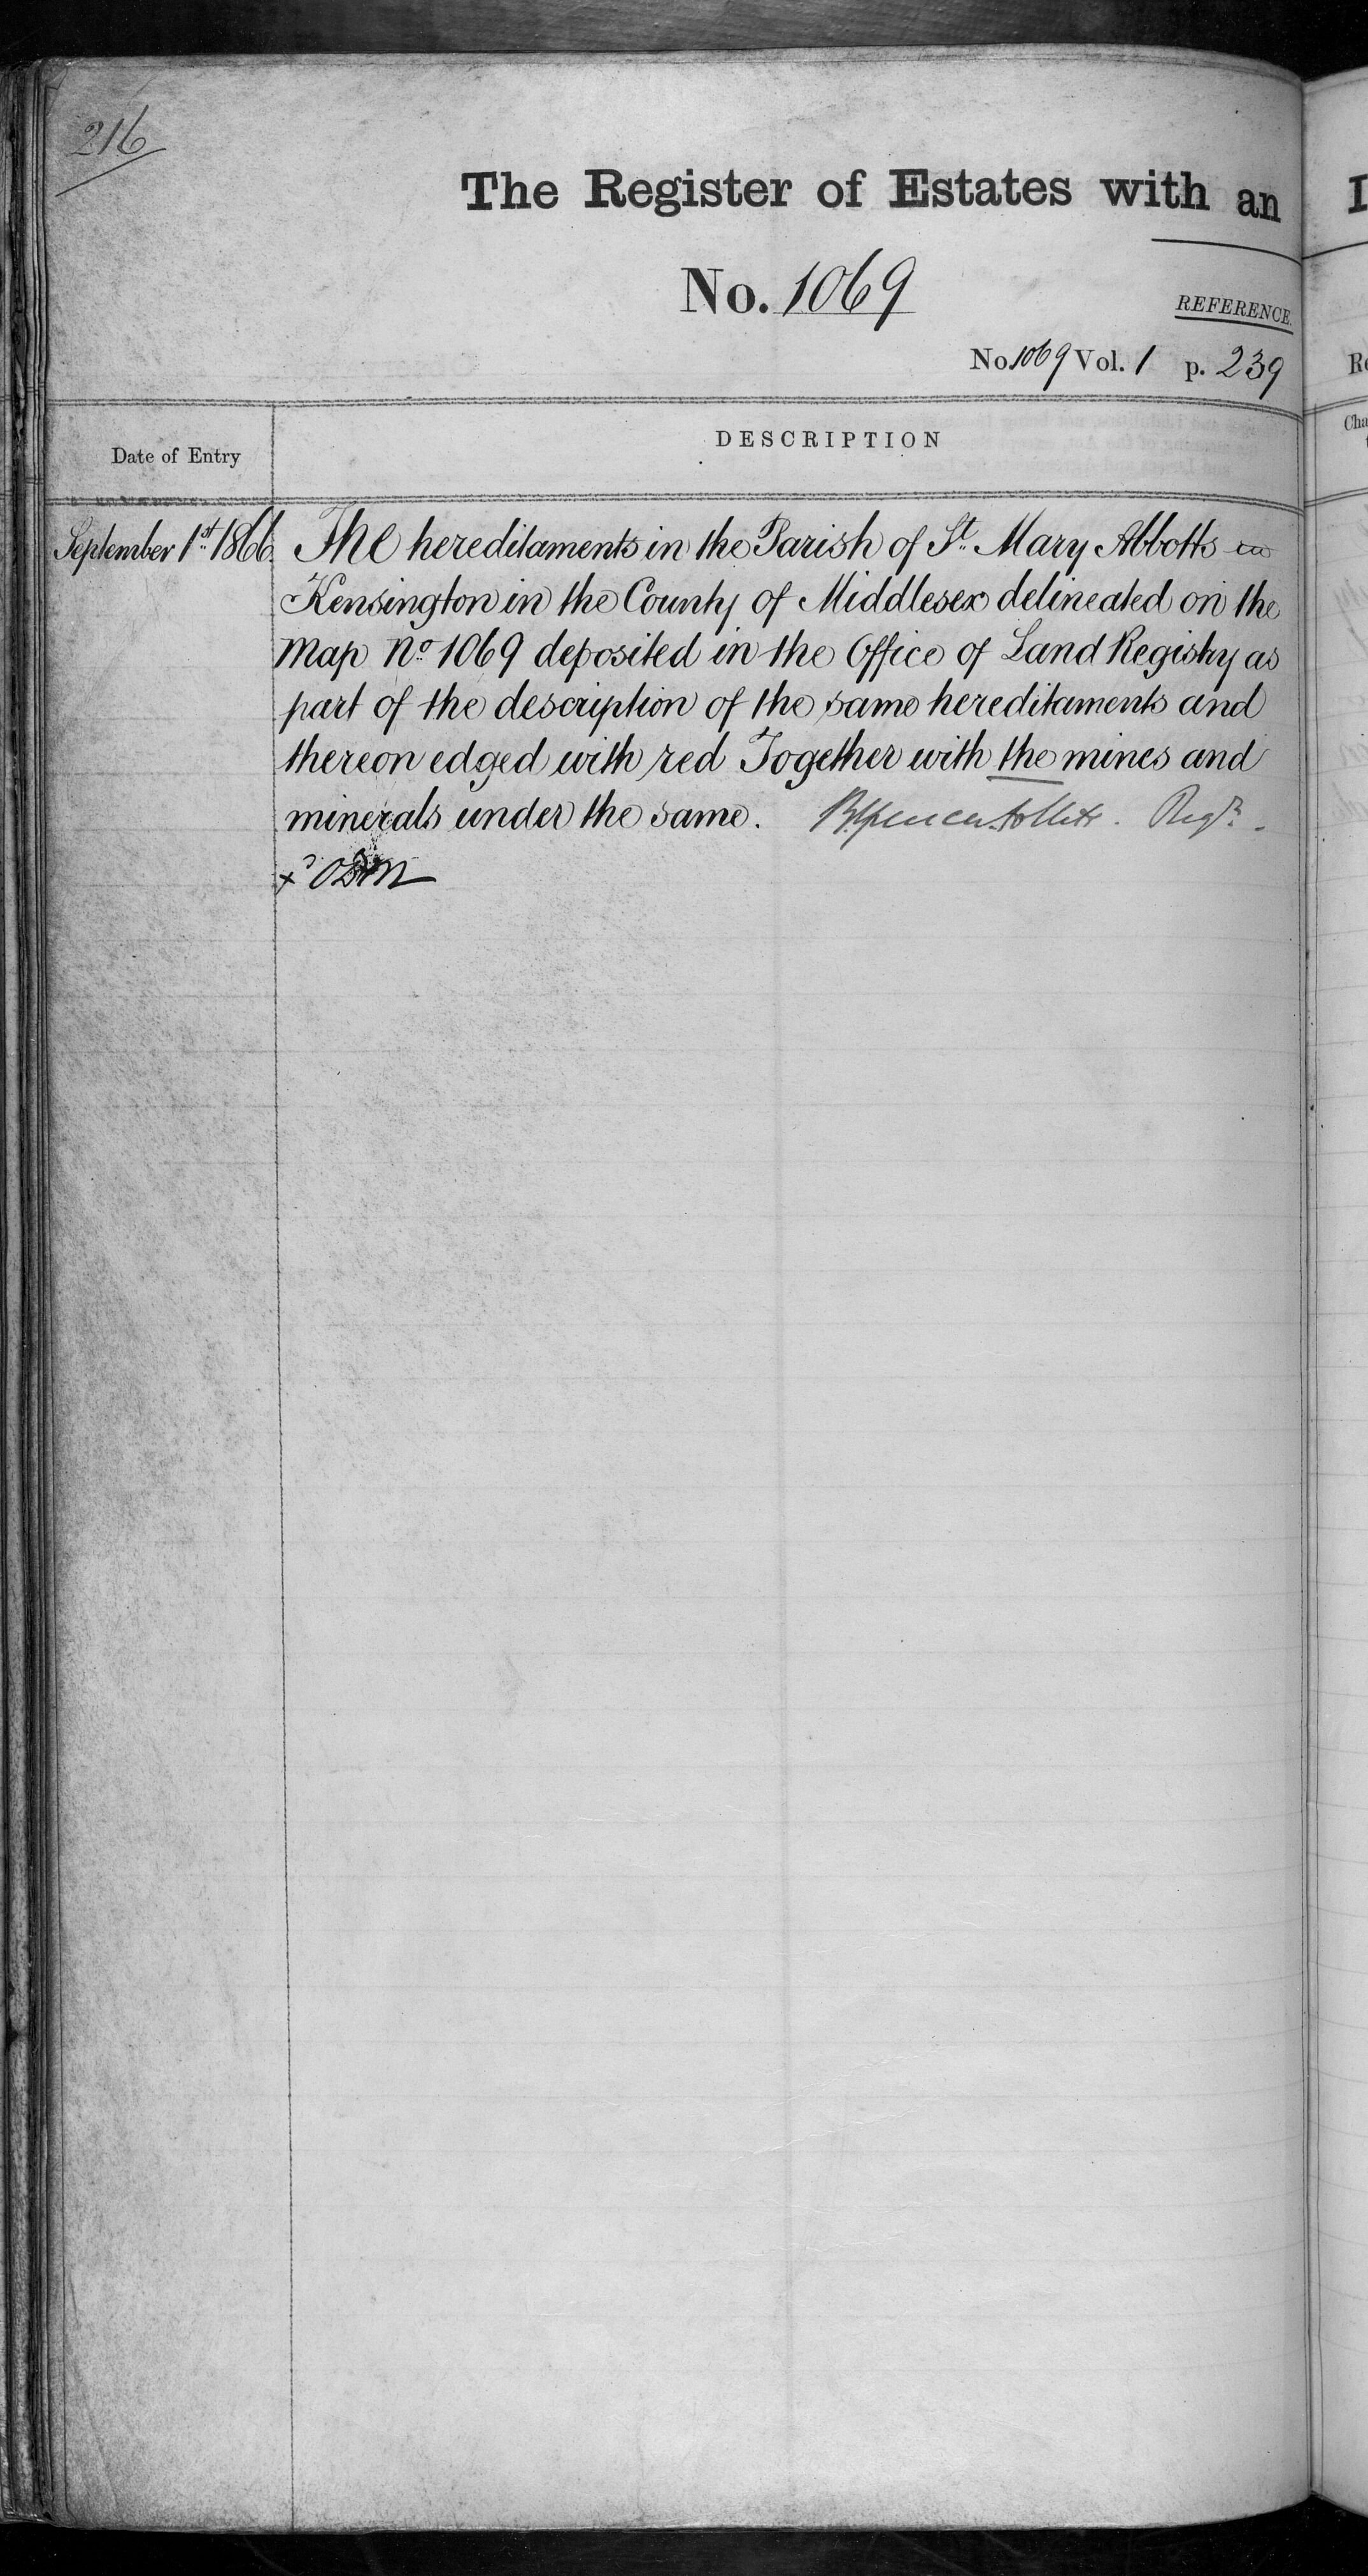 216
The Register of Estates with an
No. 1069
REFERENCE.
No. 1069 Vol. 1 p. 239
Date of Entry
DESCRIPTION
September 1st. 1866. The hereditaments in the Parish of St. Mary Abbotts in
Kensington in the County of Middlesex delineated on the
Map No. 1069 deposited in the Office of Land Registry as
part of the description of the same hereditaments and
thereon edged with red Together with the mines and
minerals under the same. Regr.